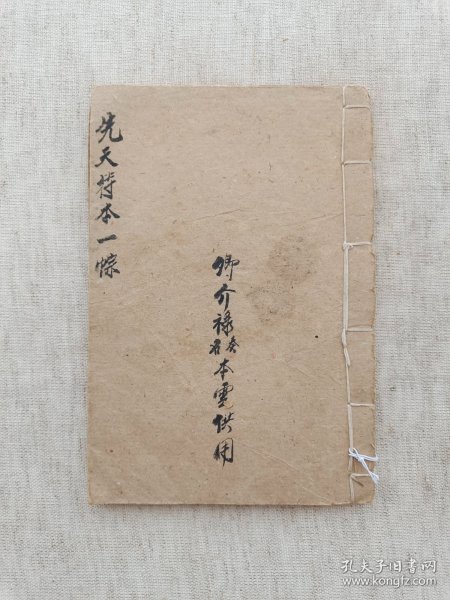 先天符本一宗
卿介祿奏名本靈供用
孔夫子旧书网
www.kongfz.com